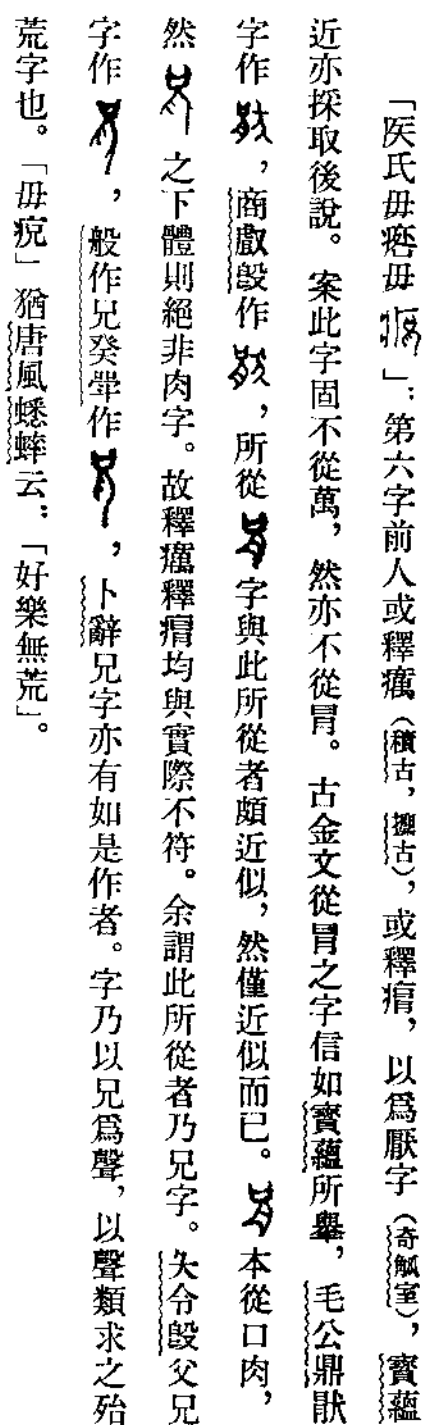 「医氏毋瘩毋 」：第六字前人或釋癘（積古，攗古），或釋痟，以爲厭字（奇觚室），寶蘊
近亦採取後說。案此字固不從萬，然亦不從肙。古金文從肙之字信如寶蘊所舉，毛公鼎猒
字作 ，商䱷𣪘作 ，所從 字與此所從者頗近似，然僅近似而已。 本從口肉，
然 之下體則絕非肉字。故釋癘釋痟均與實際不符。余謂此所從者乃兄字。夨令𣪘父兄
字作 ，般作兄癸斝作 ，卜辭兄字亦有如是作者。字乃以兄爲聲，以聲類求之殆
荒字也。「毋㾮」猶唐風蟋蟀云：「好樂無荒」。